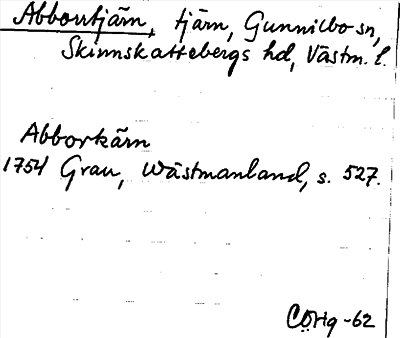 Abborrtjärn, tjärn, Gunnilbo sn,
Skinnskattebergs hd, Västm. l.
Abborkärn
1754 Grau, Wästmanland, s. 527.
-62